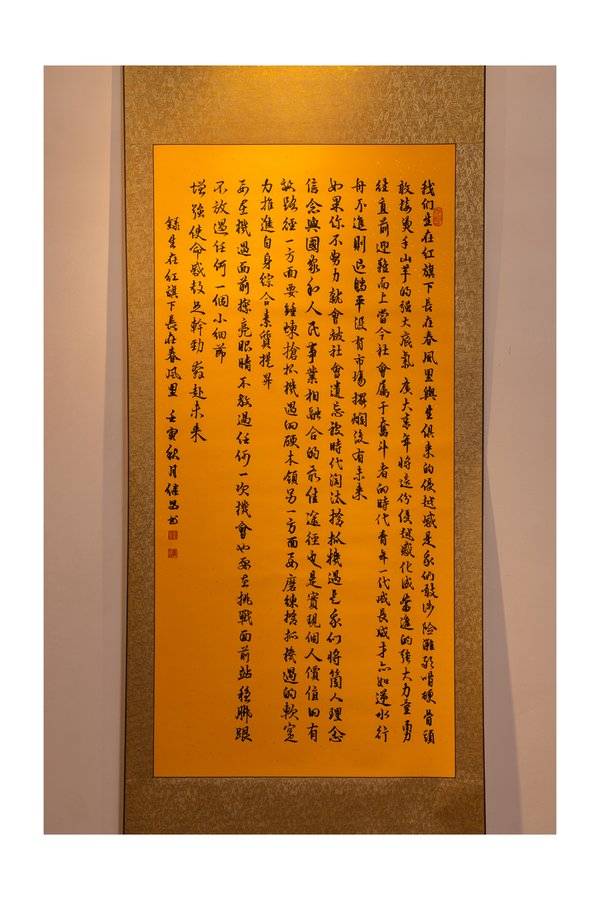 我们生在紅旗下長在春風里與生俱来的優越感是我们敢涉险滩敢啃硬骨頭
敢接燙手山芋的强大底氣廣大青年将這份優越感化成奮進的强大力量勇
往直前迎難而上當今社會属于奮斗者的時代青年一代成長成才亦如逆水行
舟不進則退躺平没有市場擺爛没有未来
如果你不努力就會被社會遺忘被時代淘汰搶抓機遇是我们将箇人理念
信念與國家和人民事業相融合的最佳途徑也是實現個人價值的有
效路徑一方面要錘煉搶抓機遇的硬本領另一方面要磨練搶抓機遇的軟實
力推進自身綜合素質提昇
要在機遇面前擦亮眼睛不放過任何一次機會也要在挑戰面前站穩脚跟
不放過任何一個小細節
增强使命感鼓足幹勁奔赴未来
録生在紅旗下長在春風里 壬寅秋月 書